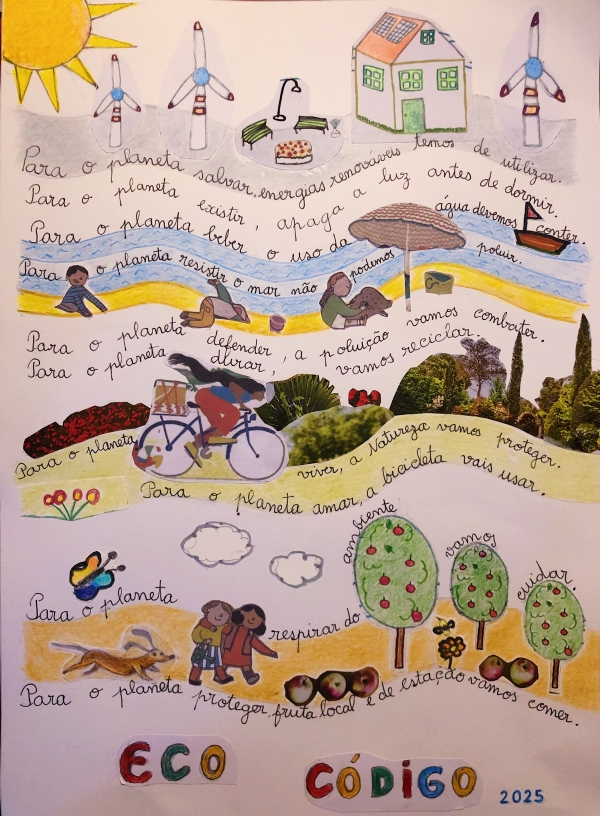 Para o planeta salvar, energias renováveis temos de utilizar.
Para o planeta existir, apaga a luz antes de dormir.
Para o planeta beber o uso da água devemos conter.
Para o planeta resistir o mar não podemos poluir.
Para o planeta defender, a poluição vamos combater.
Para o planeta durar, vamos reciclar.
Para o planeta viver, a Natureza vamos proteger.
Para o planeta amar, a bicicleta vais usar.
Para o planeta respirar do ambiente vamos cuidar.
Para o planeta proteger, fruta local e de estação vamos comer.
ECO CÓDIGO 2025